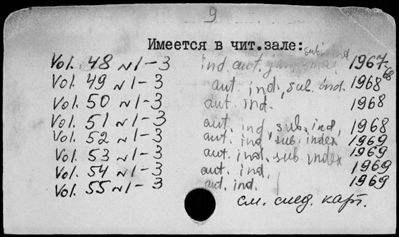 9
Имеется в чит.зале:
Vol. 48 N 1-3 ind. aut. 1967
Vol. 49 N 1-3 aut. ind., sub. ind. 1968
Vol. 50 N 1-3 aut. ind. 1968
Vol. 51 N 1-3 aut. ind, sub. ind, 1968
Vol. 52 N 1-3 aut. ind, sub. index 1969
Vol. 53 N 1-3 aut. ind. sub index 1969
Vol. 54 N 1-3 aut. ind. 1969
Vol. 55 N 1-3 aut. ind. 1969
см. след. карт.